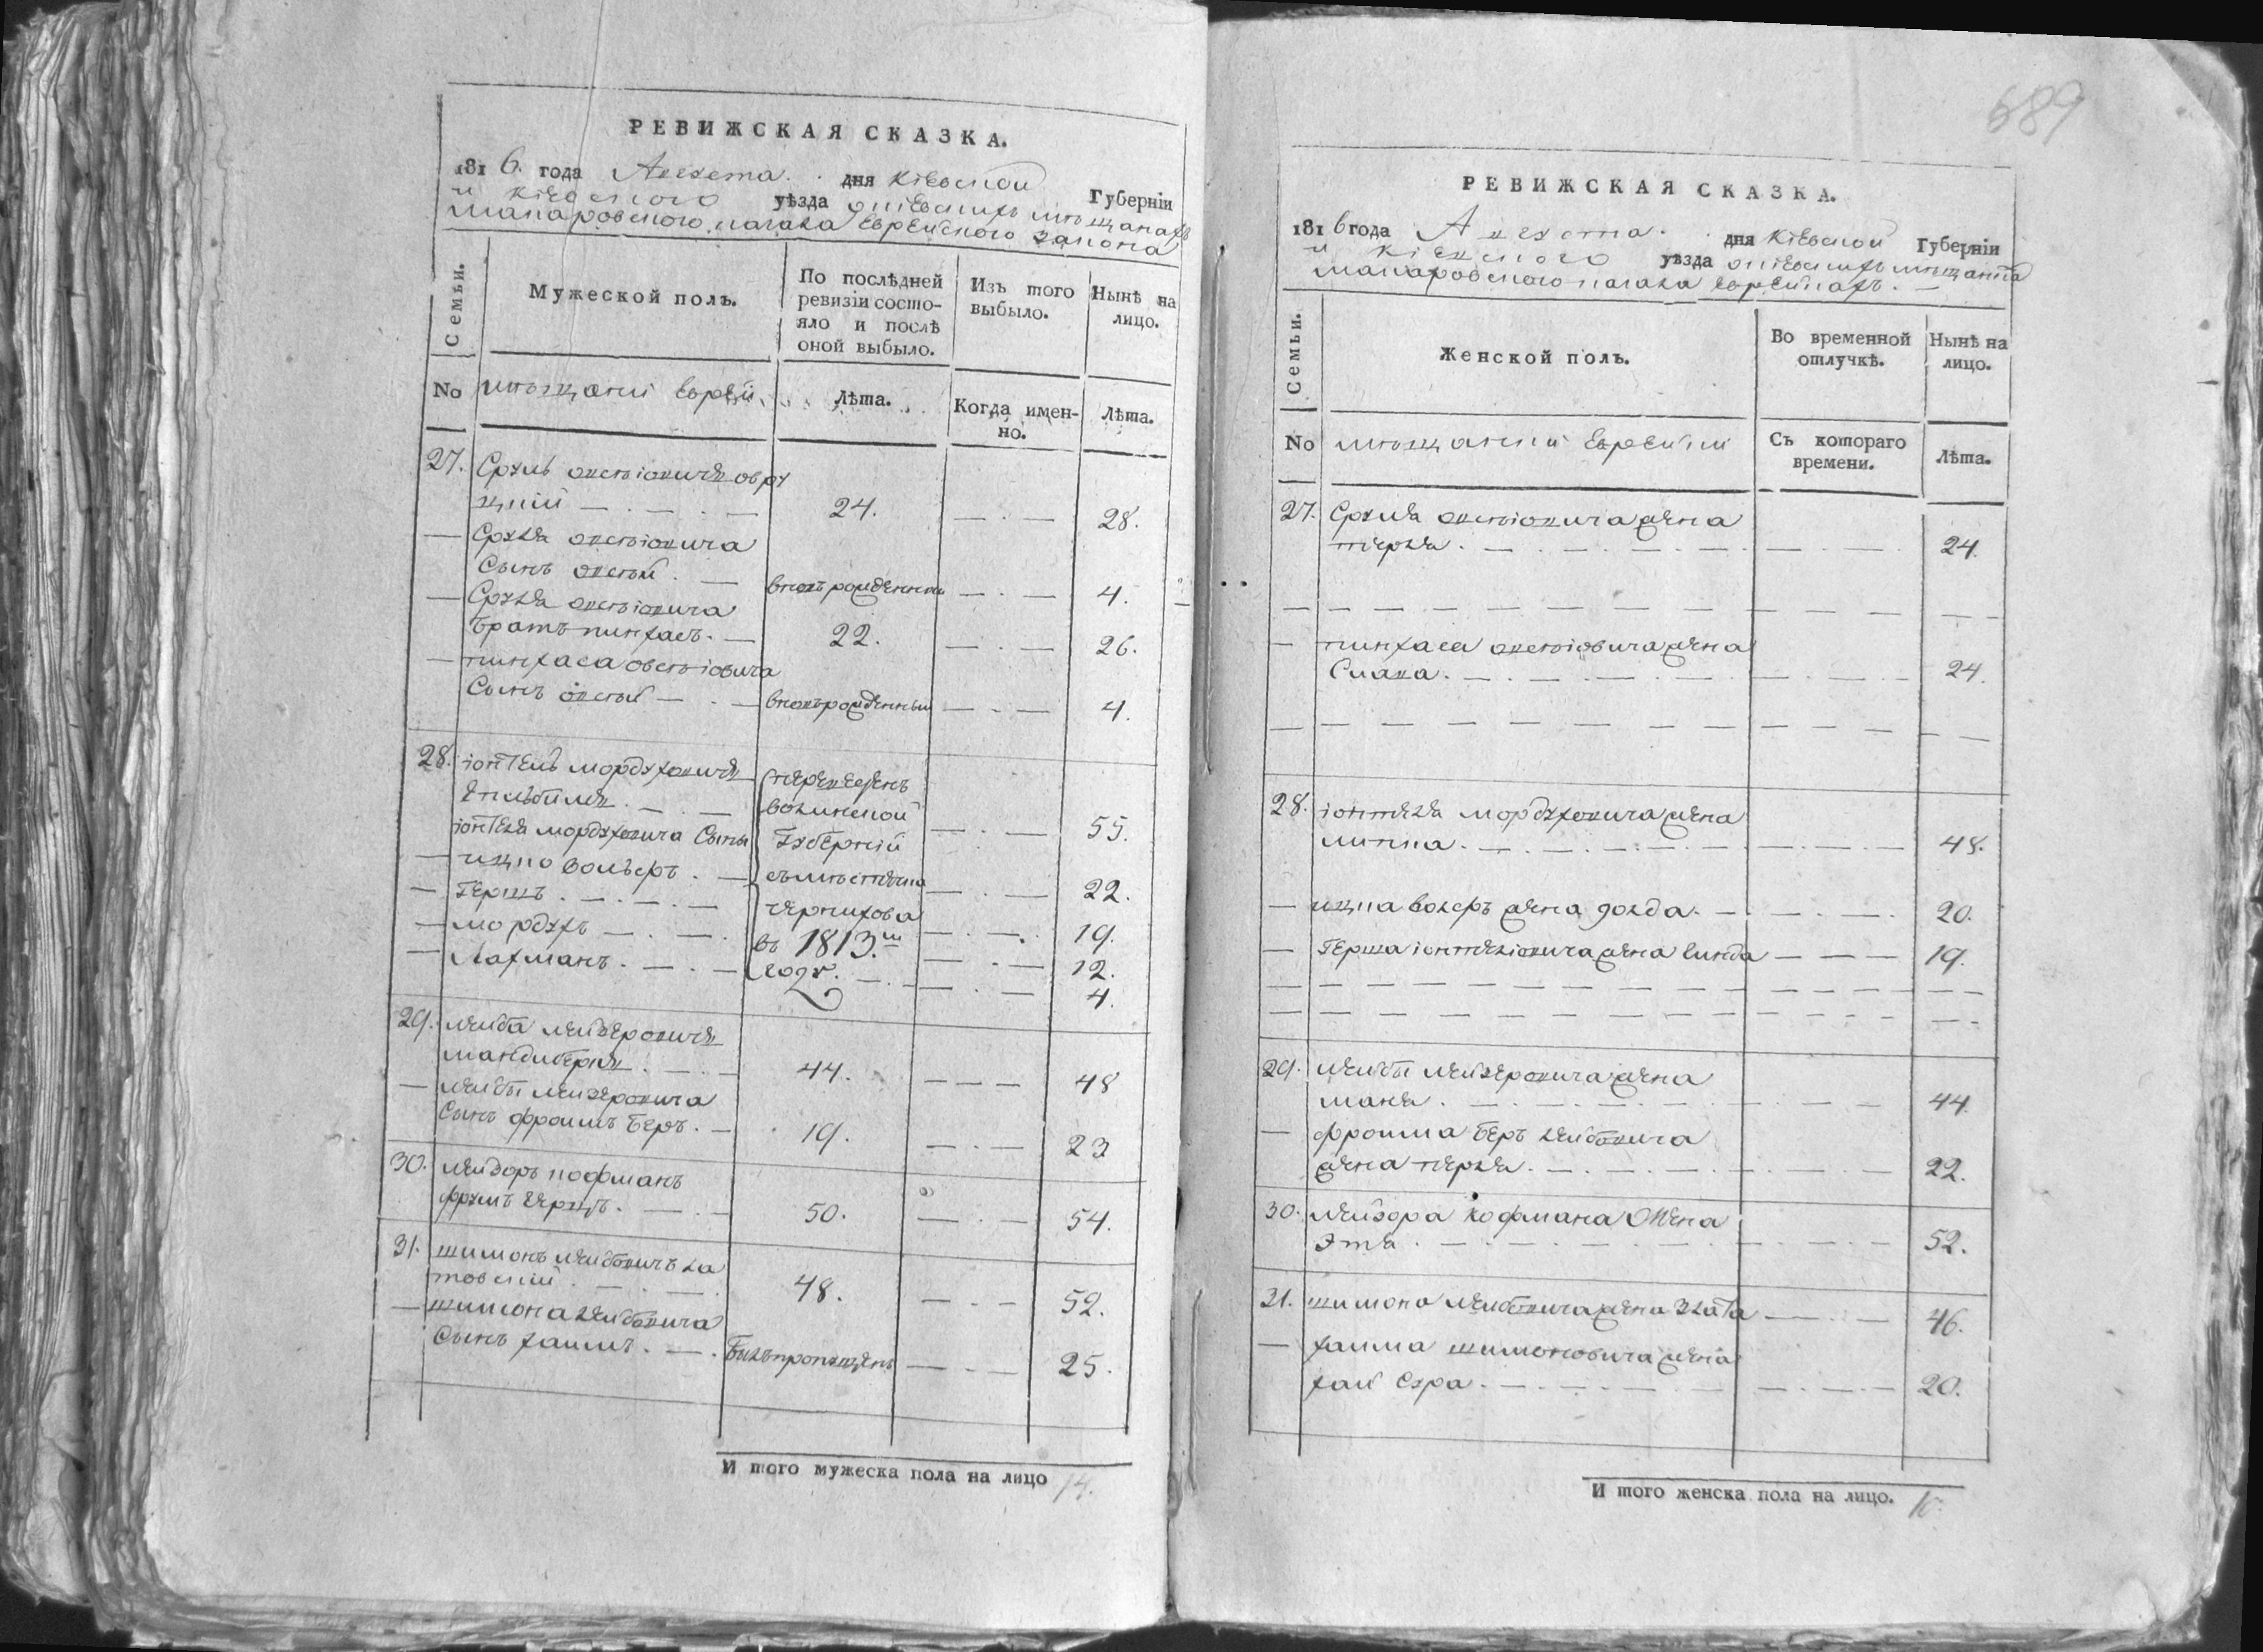 689
РЕВИЖСКАЯ СКАЗКА.
1816. года Августа. дня Кіевской Губерніи
и Кіевского уѣзда окіевскихъ мѣщанахъ
макаровского кагала Еврейского закона
Семьи.
Мужеской полъ.
По послѣдней ревизіи состо-
яло и послѣ
оной выбыло.
Изъ того
выбыло.
Нынѣ на
лицо.
No мѣщани Евреи
Лѣта.
Когда имен-
но.
Лѣта.
27. Сруль овсѣіовичъ овру
цкій 24. 28.
Сруля овсѣіовича
Сынъ овсѣй. вновъ рожденный 4.
Сруля овсѣіовича
братъ пинхасъ. 22. 26.
пинхаса овсѣіовича
Сынъ овсѣй вновърожденный 4.
28. іонтель мордуховичъ
переведенъ
волинской 55.
іонтеля мордуховича Сыны Губерніи
ицко вольѳръ. съмѣстечка 22.
Гершъ. чернихова 19.
мордухъ въ 1813.м 12.
Лахманъ. году. 4.
29. лейба лейзеровичъ
44. 48
лейбы лейзеровича
Сынъ фроимъ беръ. 19. 23
30. лейзоръ кофманъ
50. 54.
31. шимонъ лейбовичъ ла
товскій. 48. 52.
шимона лейбовича
Сынъ хаимъ. Былъпропущенъ 25.
И того мужеска пола на лицо 14.
РЕВИЖСКАЯ СКАЗКА.
1816 года Августа. дня Кіевской Губерніи
и Кіевского уѣзда окіевскихъ
макаровского кагала еврейкахъ.
Семьи.
Женской полъ.
Во временной
отлучкѣ.
Нынѣ на
лицо.
No мѣщанки Еврейки
Съ котораго
времени.
Лѣта.
27. Сруля овсѣіовича жена
перля. 24.
пинхаса овсѣіовича жена
Слава. 24.
28. іонтеля мордуховича жена
минка. 48.
ицка волеръ жена голда. 20.
Герша іонтеліовича жена 19.
29. лейбы лейзеровича жена
маня. 44.
фроима беръ лейбовича
жена перля. 22.
30. лейзора кофмана Жена
Этя. 52.
31. шимона лейбовича жена злата 46.
хаима шимоновича жена
хай Сура. 20.
И того женска пола на лицо. 10.